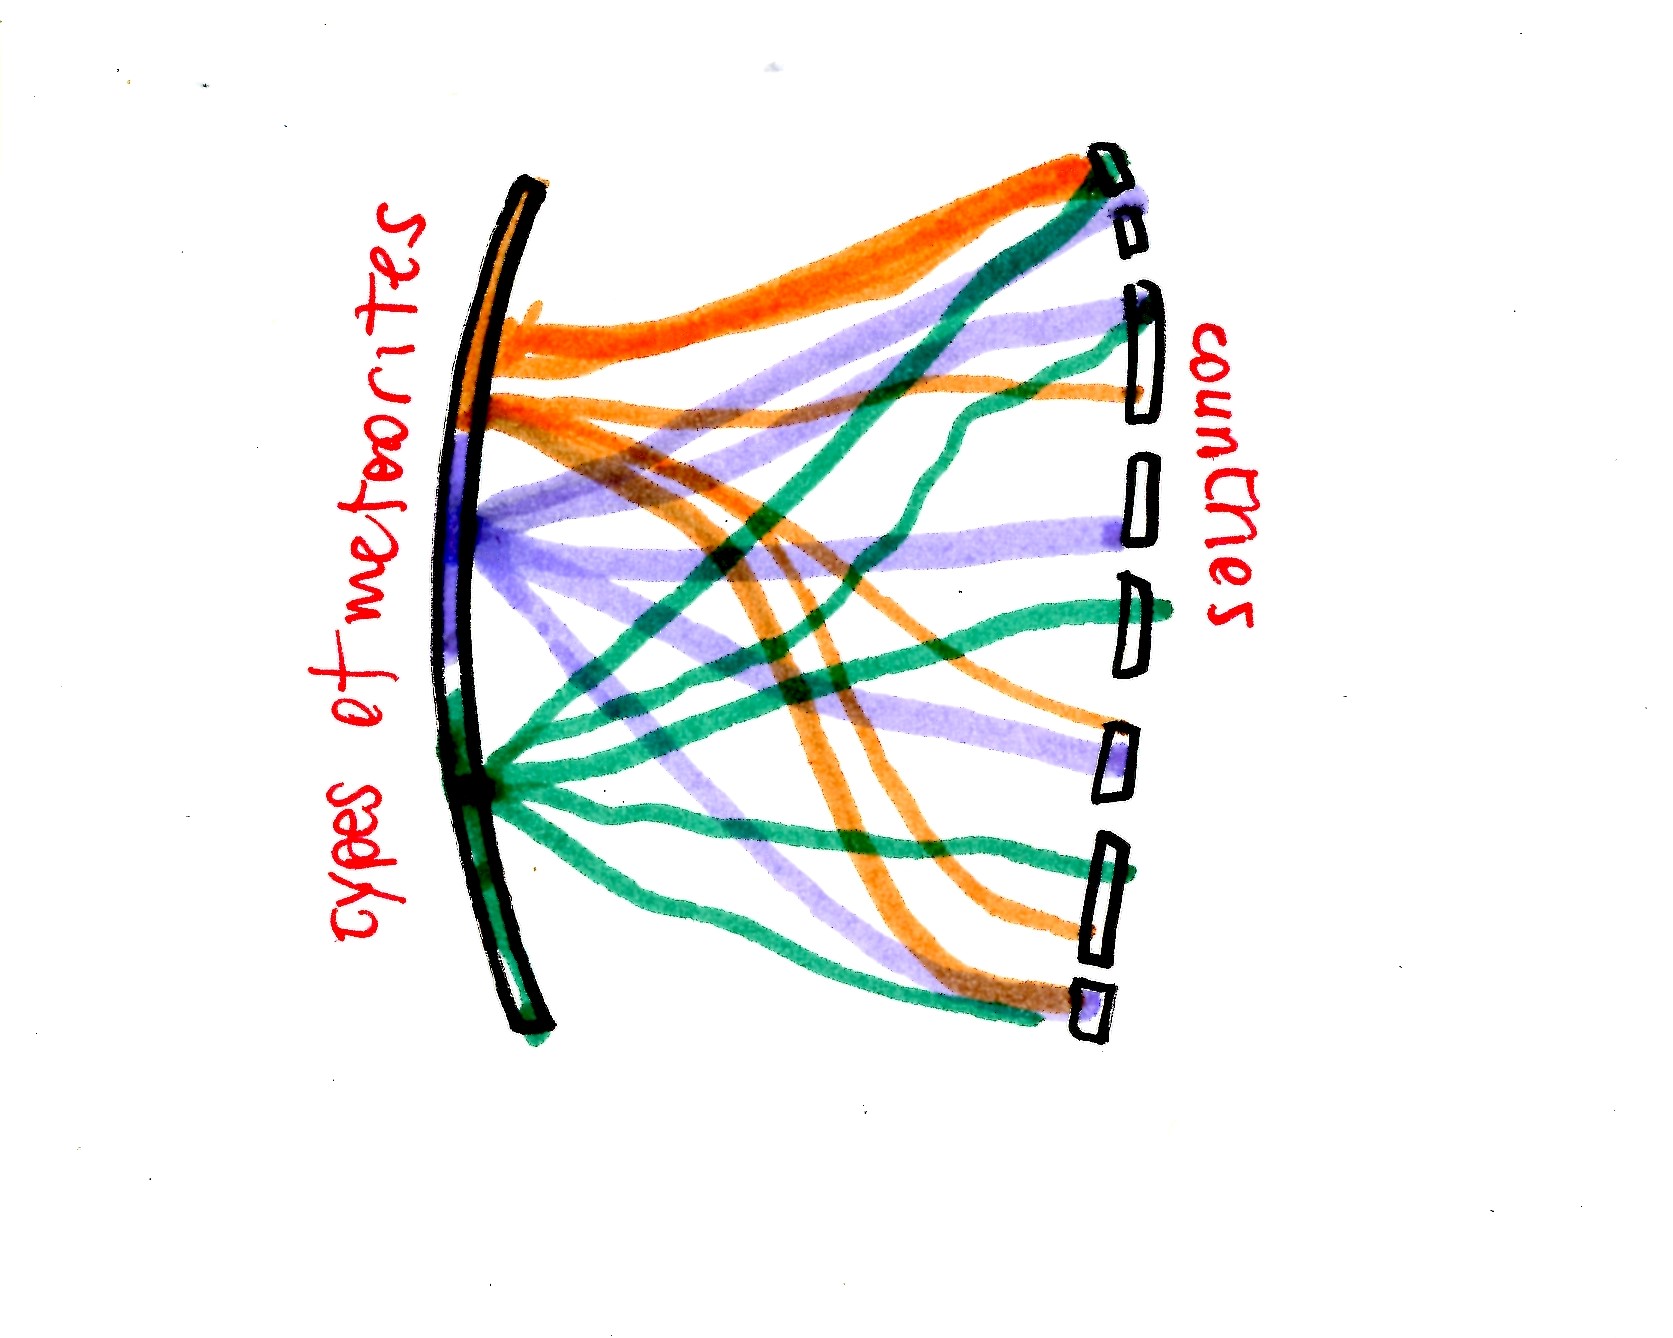 types of meteorites
countries